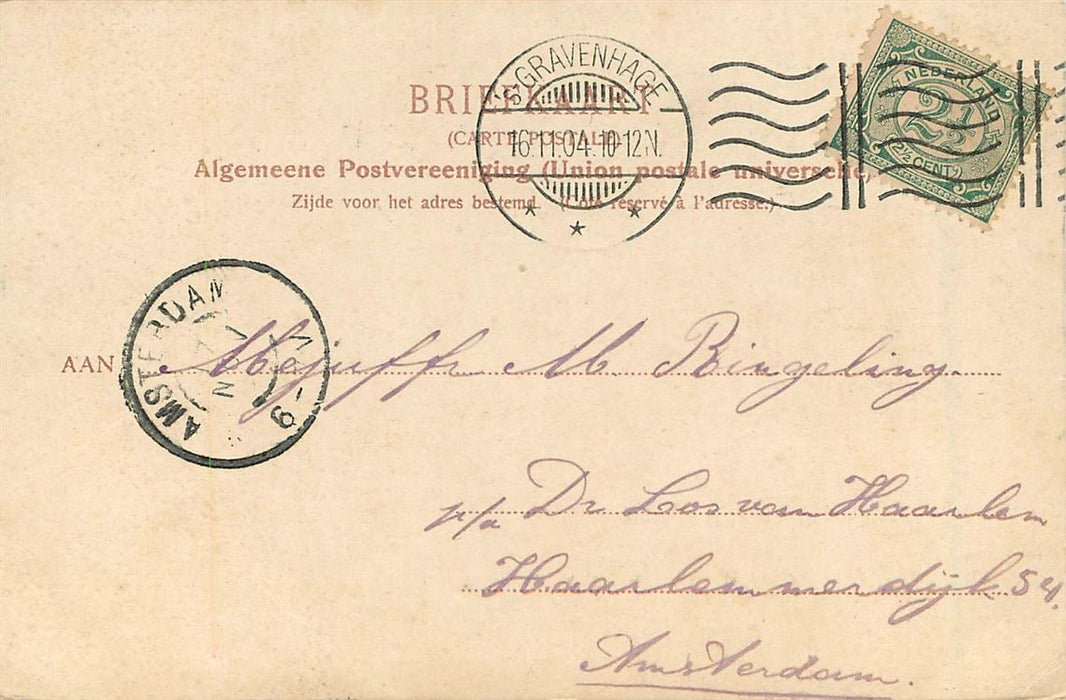 'S-GRAVENHAGE
16.11.04.10-12N.
NEDERLAND
2½
(2½ CENT)
BRIEFKAART
(CARTE POSTALE)
Algemeene Postvereeniging (Union postale universelle)
Zijde voor het adres bestemd. (Côté réservé à l'adresse.)
AMSTERDAM
AAN Mejuffr M. Bingeling.
p/a Dr. Los van Haarlem
Haarlemmerdijk 54.
Amsterdam.